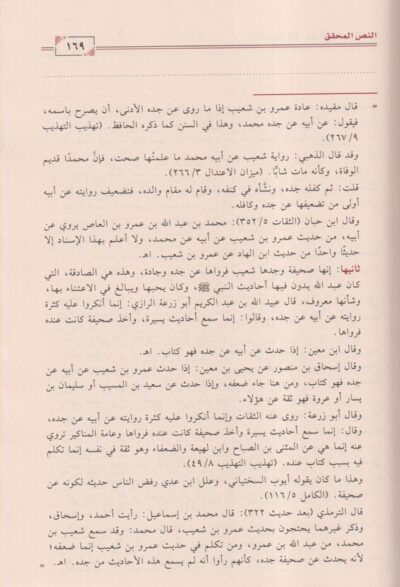 النص المحقق
١٦٩
= قال مقيده: عادة عمرو بن شعيب إذا ما روى عن جده الأدنى، أن يصرح باسمه،
فيقول: عن أبيه عن جده محمد، وهذا في السنن كما ذكره الحافظ. (تهذيب التهذيب
٢٦٧/٩).
وقد قال الذهبي: رواية شعيب عن أبيه محمد ما علمتُها صحت، فإنَّ محمدًا قديم
الوفاة، وكأنه مات شابًّا. (ميزان الاعتدال ٢٦٦/٣).
قلت: ثم كفله جده، ونشَّأه في كنفه، وقام له مقام والده، فتضعيف روايته عن أبيه
أولى من تضعيفها عن جده وكافله.
وقال ابن حبان (الثقات ٣٥٢/٥): محمد بن عبد الله بن عمرو بن العاص يروي عن
أبيه، من حديث عمرو بن شعيب عن أبيه عن محمد، ولا أعلم بهذا الإسناد إلا
حديثًا واحدًا من حديث ابن الهاد عن عمرو بن شعيب. اهـ.
ثانيها: إنها صحيفة وجدها شعيب فرواها عن جده وجادة، وهذه هي الصادقة، التي
كان عبد الله يدون فيها أحاديث النبي ﷺ، وكان يحبها ويبالغ في الاعتناء بها،
وشأنها معروف، قال عبيد الله بن عبد الكريم أبو زرعة الرازي: إنما أنكروا عليه كثرة
روايته عن أبيه عن جده، وقالوا: إنما سمع أحاديث يسيرة، وأخذ صحيفة كانت عنده
فرواها.
وقال ابن معين: إذا حدث عن أبيه عن جده فهو كتاب. اهـ.
وقال إسحاق بن منصور عن يحيى بن معين: إذا حدث عمرو بن شعيب عن أبيه عن
جده فهو كتاب، ومن هنا جاء ضعفه، وإذا حدث عن سعيد بن المسيب أو سليمان بن
يسار أو عروة فهو ثقة عن هؤلاء.
وقال أبو زرعة: روى عنه الثقات وإنما أنكروا عليه كثرة روايته عن أبيه عن جده،
وقال: إنما سمع أحاديث يسيرة وأخذ صحيفة كانت عنده فرواها وعامة المناكير تروي
عنه إنما هي عن المثنى بن الصباح وابن لهيعة والضعفاء وهو ثقة في نفسه إنما تكلم
فيه بسبب كتاب عنده. (تهذيب التهذيب ٤٩/٨).
وهذا ما كان يقوله أيوب السختياني، وعلل ابن عدي رفض الناس حديثه لكونه عن
صحيفة. (الكامل ١١٦/٥).
وقال الترمذي (بعد حديث ٣٢٢): قال محمد بن إسماعيل: رأيت أحمد، وإسحاق،
وذكر غيرهما يحتجون بحديث عمرو بن شعيب، قال محمد: وقد سمع شعيب بن
محمد، من عبد الله بن عمرو، ومن تكلم في حديث عمرو بن شعيب إنما ضعفه؛
لأنه يحدث عن صحيفة جده، كأنهم رأوا أنه لم يسمع هذه الأحاديث من جده. اهـ. =